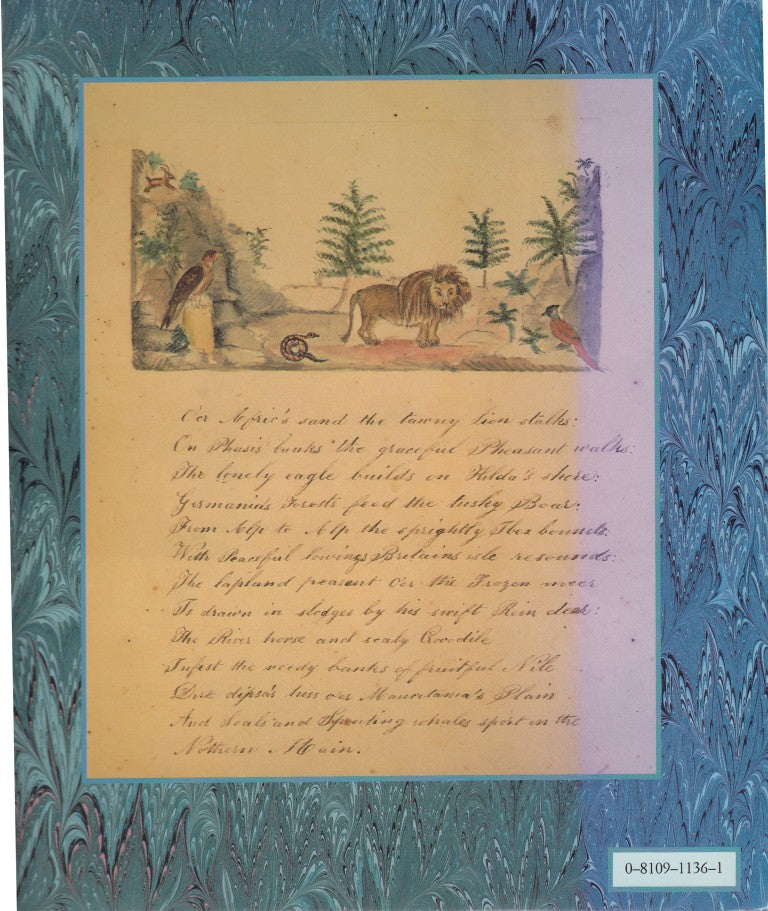 O'er Afric's sand the tawny Lion stalks:
On Phasis' banks the graceful Pheasant walks:
The lonely eagle builds on Kilda's shore:
Germania's Forests feed the tusky Boar:
From Alp to Alp the sprightly Ibex bounds:
With Peaceful lowings Britains isle resounds:
The lapland peasant O'er the Frozen meer
Is drawn in sledges by his swift Rein deer:
The River horse and scaly Crocodile
Infest the reedy banks of fruitful Nile
Dire dipsa's hiss o'er Mauritania's Plain
And Seals and Spouting whales sport in the
Nothern Main.
0-8109-1136-1